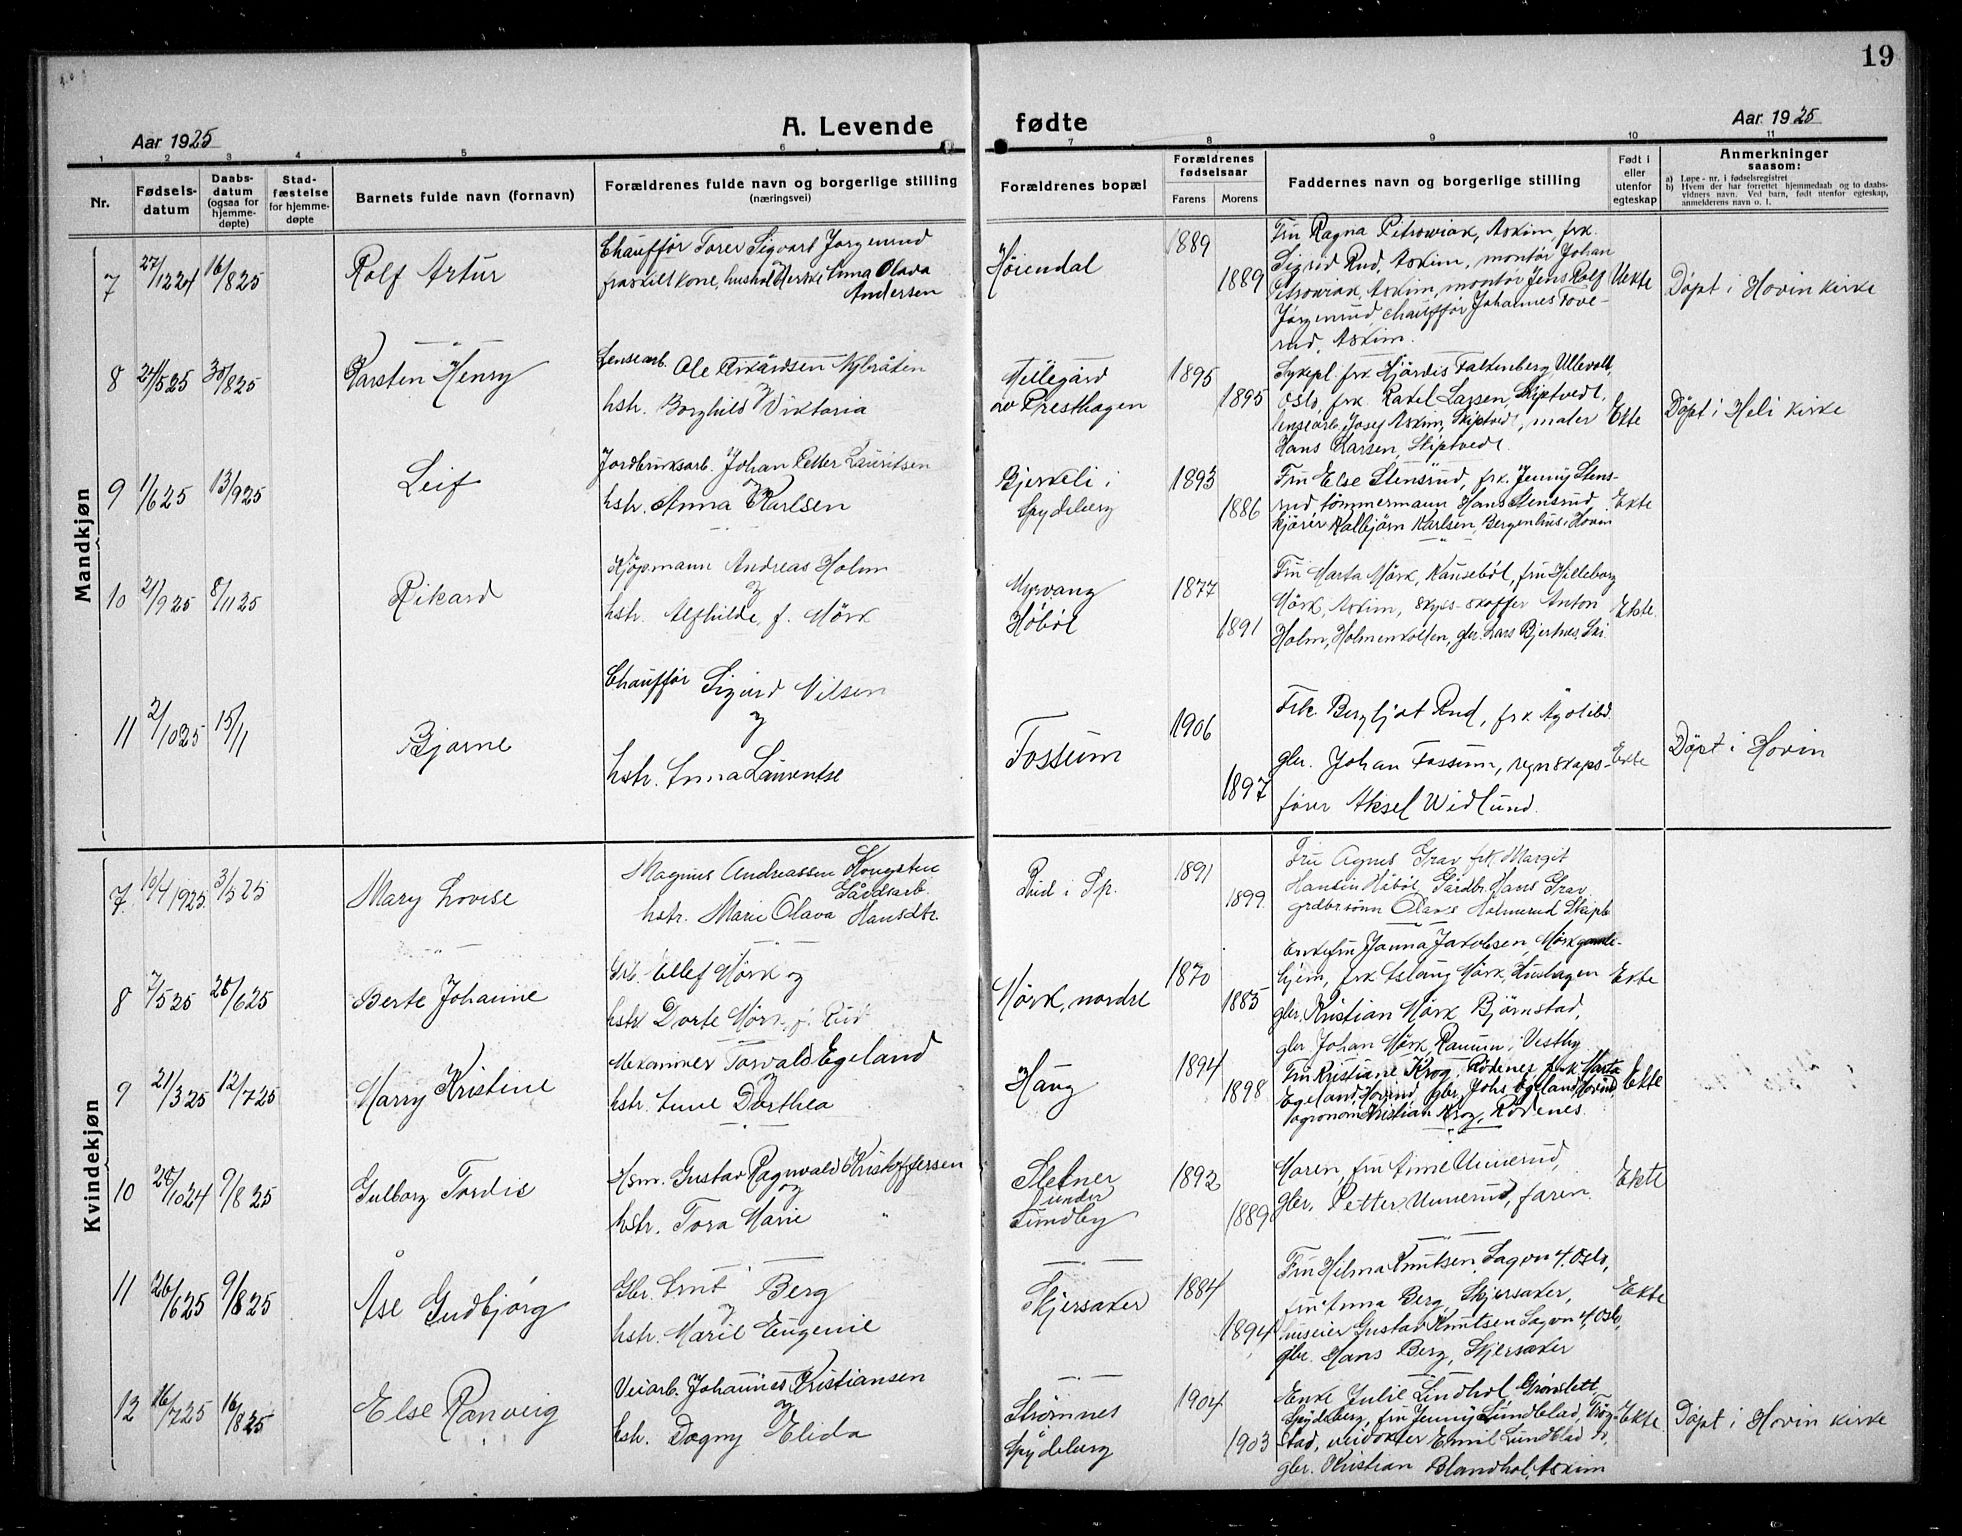 19
Aar 1925
A. Levende fødte
Aar 1925
1 2 3 4 5 6 7 8 9 10 11
Nr.
Fødsels-
datum
Daabs-
datum
(ogsaa for
hjemme-
døpte)
Stad-
fæstelse
for hjemme-
døpte
Barnets fulde navn (fornavn)
Forældrenes fulde navn og borgerlige stilling
(næringsvei)
Forældrenes bopæl
Forældrenes
fødselsaar
Farens Morens
Faddernes navn og borgerlige stilling
Født i
eller
utenfor
egteskap
Anmerkninger
saasom:
a) Løpe-nr. i fødselsregistret
b) Hvem der har forrettet hjemmedaab og to daabs-
vidners navn. Ved barn, født utenfor egteskap,
anmelderens navn o. l.
Mandkjøn
7 27/12 24 16/8 25
Rolf Artur
Chauffør Torer Sigvart Jørgenrud
fraskilt kone, husholderske Anna Olava
Andersen
Høiendal
1889
1889
Fru Ragna Petrowiak, Askim, frk.
Sigrid Rud, Askim, montør Johan
Petrowiak, Askim, montør Jens Rolf
Jørgenrud, chauffør Johannes Tove-
rud, Askim.
Uekte
Døpt i Hovin kirke
8 24/5 25 30/8 25
Karsten Henry
Lensearb. Ole Rikardsen Nybråten
og
hstr. Borghild Viktoria
Mellegård
av Presthagen
1895
1895
Sykepl. frk Hjørdis Falkenberg Ullevoll,
Oslo, frk Rakel Larsen, Skiptvedt,
lensearb. Josef Askim, Skiptvedt, maler
Hans Larsen, Skiptvedt
Ekte
Døpt i Heli kirke
9 1/6 25 13/9 25
Leif
Jordbruksarb. Johan Petter Lauritsen
og
hstr. Anna Karlsen
Bjerkeli i
Spydeberg
1893
1886
Fru Else Stensrud, frk. Jenny Stens-
rud, tømmermann Hans Stensrud,
kjører Kalbjørn Karlsen, Bergenhus i Hovin
Ekte
10 21/9 25 8/11 25
Rikard
Kjøpmann Andreas Holm
og
hstr. Alfhilde, f. Mørk
Myrvang
Høbøl
1877
1891
Fru Marta Mørk, Kausebøl, fru Hilleborg
Mørk, Askim, skyss-skaffer Anton
Holm, Holmenkollen, gbr. Lars Bjertnes, Ski
Ekte.
11 2/10 25 15/11
Bjarne
Chauffør Sigurd Nilsen
og
hstr. Anna Laurentse
Fossum
1906
1897
Frk. Bergljot Rud, frk
gbr. Johan Fossum, regnskaps-
fører Aksel Widlund.
Ekte
Døpt i Hovin
Kvindekjøn
7. 10/4 1925. 3/5 25
Mary Lovise
Magnus Andreassen Kongstu
Gårdsarb.
hstr. Marie Olava Hansdtr.
Rud i Sp.
1891
1899.
Fru Agnes Grav frk. Margit
Hansen Høbøl Gårdbr. Hans Grav
grdbr.sønn Olav Holmerud Skiptv
8 7/5 25 25/6 25
Berte Johanne
Grb. Ellef Mørk og
hstr Dorte Mørk, f. Rud
Mørk, nordre
1870
1885
Enkefru Janna Jakobsen, Mørk gamle-
hjem, frk Aslaug Mørk, Kushagen
gbr. Kristian Mørk Bjørnstad,
gbr Johan Mørk, Ramm i Vestby
Ekte
9 21/3 25 12/7 25
Marry Kristine
Mekaniker Torvald Egeland
og
hstr. Anne Dorthea
Haug
1894
1898
Fru Kristiane Krog, Rødenes, frk Marta
Egeland, Hovind, gbr. Johs Egeland, Hovind,
agronom Kristian Krog, Rødenes.
Ekte
10 20/10 24 9/8 25
Gulborg Tordis
Hsm. Gustav Ragnvald Kristoffersen
og
hstr. Tora Marie
Sletner
under
Lundby
1892
1889
Moren, fru Anne Unnerud,
gbr. Petter Unnerud, faren.
Ekte
11 26/6 25 9/8 25
Åse Gudbjørg
Gbr. Arnt Berg
og
hstr. Maril Eugenie
Skjersaker
1884
1894
Fru Helma Knutsen, Sagvn 4, Oslo,
fru Anna Berg, Skjersaker,
huseier Gustav Knutsen Sagvn 4, Oslo,
gbr. Hans Berg, Skjersaker
Ekte
12 16/7 25 16/8 25
Else Ranveig
Veiarb. Johannes Kristiansen
og
hstr. Dagny Elida
Strømnes
Spydeberg
1904
1903
Enke Julie Lindhol, Grønslett,
Spydeberg, fru Jenny Lundblad, Trøg-
stad, veivokter Emil Lundblad Tr,
gbr. Kristian Blandhol, Askim
Ekte
Døpt i Hovin kirke